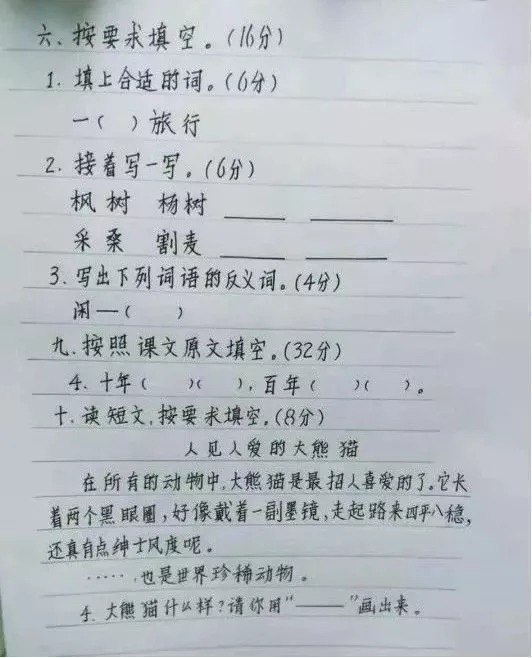 六、按要求填空。(16分)
1. 填上合适的词。(6分)
一( )旅行
2. 接着写一写。(6分)
枫树 杨树 ____ ____
采桑 割麦 ____ ____
3. 写出下列词语的反义词。(4分)
闲—( )
九.按照课文原文填空。(32分)
4. 十年( )( ),百年( )( )。
十.读短文,按要求填空。(8分)
人见人爱的大熊猫
在所有的动物中,大熊猫是最招人喜爱的了。它长
着两个黑眼圈,好像戴着一副墨镜,走起路来四平八稳,
还真有点绅士风度呢。
……,也是世界珍稀动物。
4. 大熊猫什么样?请你用“——”画出来。